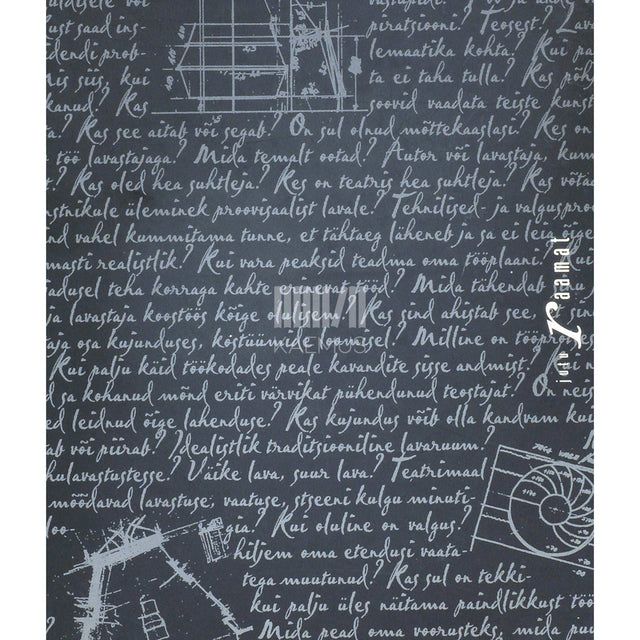 vastupidi?
ust saad ins- piratsiooni? Teosest? Lava
dendi prob- lemaatika kohta? Kui pa
is siis, kui ta ei taha tulla? Kas pöh
kanud? Kas soovid vaadata teiste kunst
? Kas see aitab või segab? On sul olnud mõttekaaslasi? Kes on
töö lavastajaga? Mida temalt ootad? Autor või lavastaja, kumm
? Kas oled hea suhtleja? Kes on teatris hea suhtleja? Kas võta
nstnikule üleminek proovisaalist lavale? Tehnilised- ja valguspro
nd vahel kummitama tunne, et tähtaeg läheneb ja sa ei leia õig
masti realistlik? Kui vara peaksid teadma oma tööplaani? Kui
adusel teha korraga kahte erinevat tööd? Mida tähendab
ja lavastaja koostöös kõige olulisem? Kas sind ahistab see, et
taja osa kujunduses, kostüümide loomisel? Milline on tööprotses
Kui palju käid töökodades peale kavandite sisse andmist? Kas
d sa kohanud mõnd eriti värvikat pühendunud teostajat? On neis
ed leidnud õige lahenduse? Kas kujundus võib olla kandvam kui
ab või piirab? Idealistlik traditsiooniline lavaruum?
hulavastustesse? Väike lava, suur lava? Teatrimaal
mõõdavad lavastuse, vaatuse, stseeni kulgu minuti-
loo gia? Kui oluline on valgus?
hiljem oma etendusi vaata-
tega muutunud? Kas sul on tekki-
kui palju üles näitama paindlikkust töö
Mida pead oma voorusteks, mida puu
juju raamat
KAEMUS